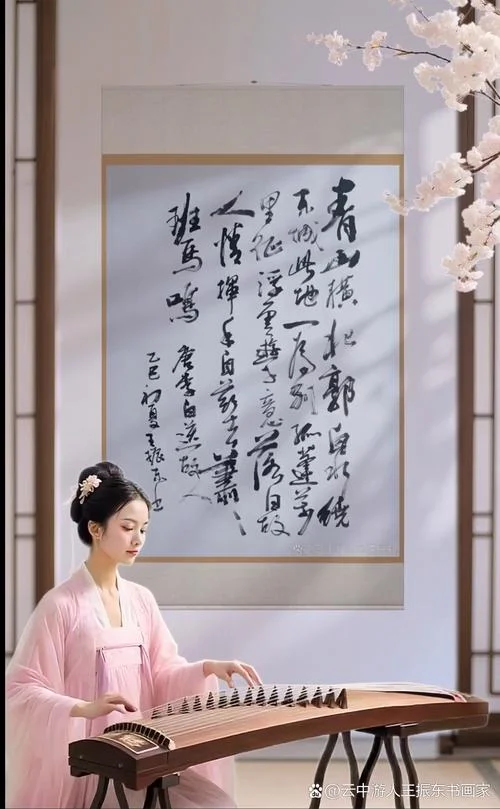 青山橫北郭白水繞
东城此地一为别孤蓬萬
里征浮雲遊子意落日故
人情揮手自兹去蕭々
班馬鳴 唐李白送故人
乙巳初夏王振东书
云中游人王振东书画家